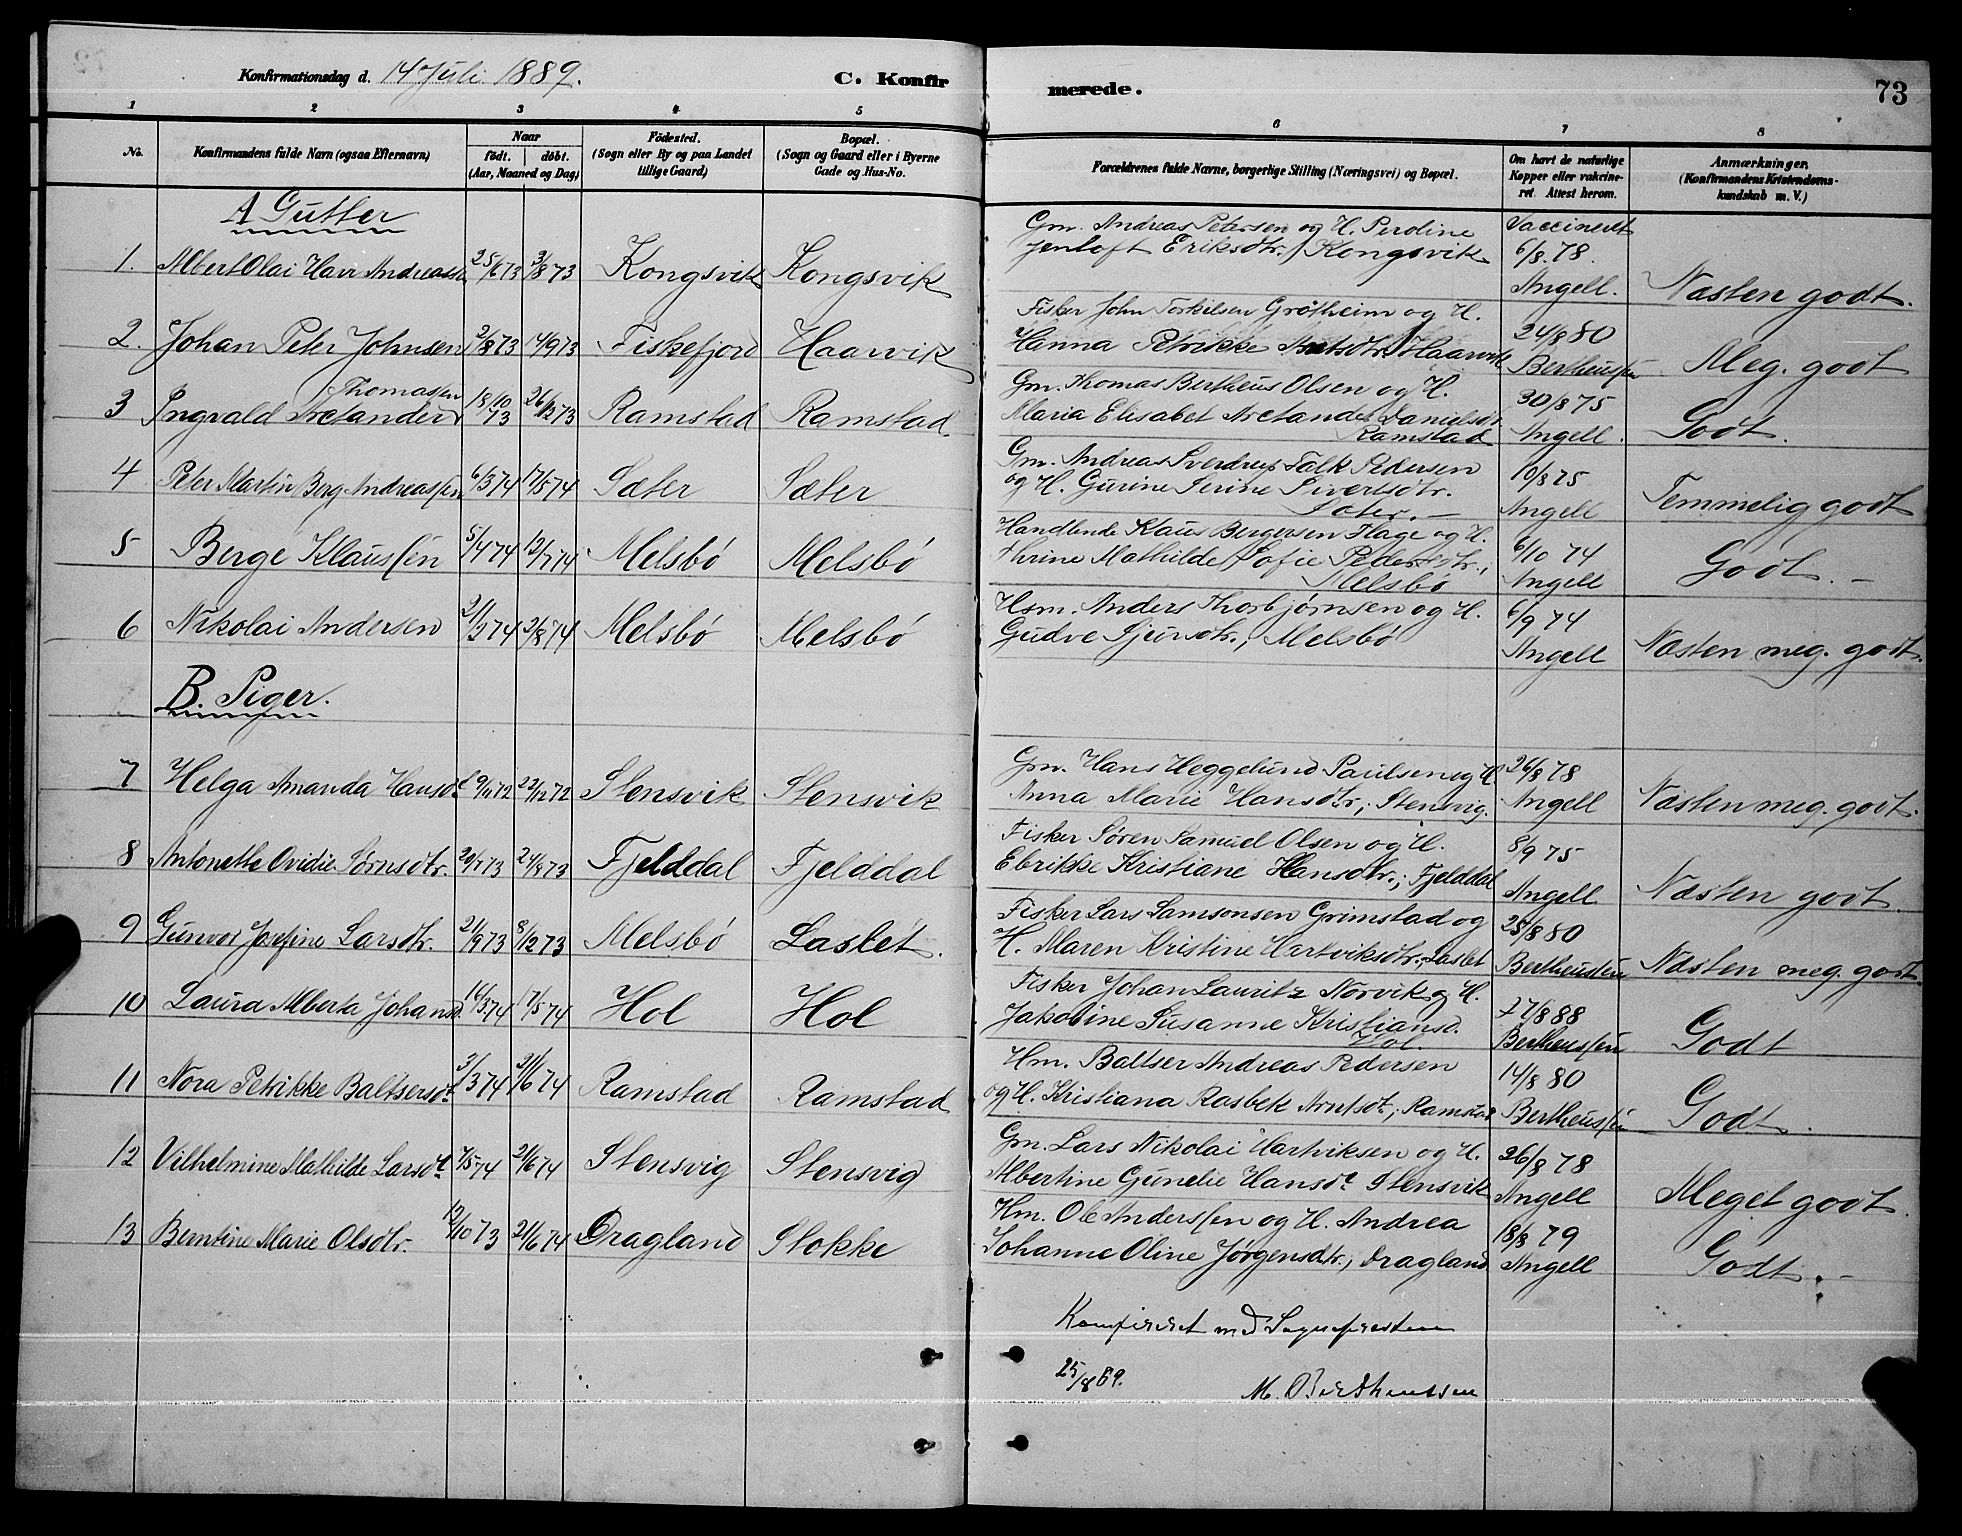 Konfirmationsdag d. 14 Juli 1889.
C. Konfirmerede.
73
1 2 3 4 5 6 7 8
No.
Konfirmandens fulde Navn (ogsaa Efternavn)
Naar
födt. döbt.
(Aar, Maaned og Dag)
Födested.
(Sogn eller By og paa Landet
tillige Gaard)
Bopæl.
(Sogn og Gaard eller i Byerne
Gade og Hus-No.
Forældrenes fulde Navne, borgerlige Stilling (Næringsvei) og Bopæl.
Om havt de naturlige
Kopper eller vakcine-
ret. Attest herom.
Anmærkninger.
(Konfirmandens Kristendoms-
kundskab m. V.)
A Gutter
1. Albert Olai Andreas 25/6 73 3/8 73 Kongsvik Kongsvik
Gm. Andreas Petersen og H. Peroline
Jentoft Eriksdtr. / Kongsvik
Vaccineret
6/8 78.
Angell.
Næsten godt.
2. Johan Peter Johnsen 2/8 73 14/9 73 Fiskefjord Haarvik
Fisker John Torkilsen Grötheim og H.
Hanna Petrikke Haarvik
24/8 80
Bertheussen
Meg. godt
3 Ingvald Aretander Thomassen 18/10 73 26/12 73 Ramstad Ramstad
Gm. Thomas Bertheus Olsen og H.
Maria Elisabet Aretander Danielsdtr
Ramstad
30/8 75
Angell.
Godt.
4 Peter Martin Berg Andreassen 6/3 74 17/5 74 Sæter Sæter
Gm. Andreas Sverdrup Falk Pedersen
og H. Gurine Serine Sivertsdtr.
Sæter. —
10/8 75
Angell
Temmelig godt
5 Berge Klaussen 5/4 74 12/7 74 Melsbö Melsbö
Handlende Klaus Bergersen Hage og H.
Thrine Mathilde Sofie Pedersdtr.,
Melsbö
6/10 74
Angell
Godt. —
6 Nikolai Andersen 21/2 74 2/8 74 Melsbö Melsbö
Hsm. Anders Thorbjörnsen og H.
Gudve Sjursdtr., Melsbö
6/9 74
Angell
Næsten meg. godt.
B. Piger.
7 Helga Amanda Hansdt 9/11 72 22/12 72 Stensvik Stensvik
Gm. Hans Heggelund Paulsen og H.
Anna Marie Hansdtr.; Stensvig.
26/8 78
Angell
Næsten meg. godt.
8 Antonette Ovidie Sörnsdtr. 20/7 73 24/8 73 Fjelddal Fjelddal
Fisker Sören Samuel Olsen og H.
Ebrikke Kristiane Hansdtr.; Fjelddal
8/9 75
Angell
Næsten godt.
9 Gunvor Josefine Larsdtr. 21/9 73 8/12 73 Melsbö Laslet.
Fisker Lars Samsonsen Grimstad og
H. Maren Kristine Hartviksdtr., Laslet
25/8 80
Bertheussen
Næsten meg. godt
10 Laura Alberta Johansd. 16/3 74 17/5 74 Hol Hol
Fisker Johan Lauritz Norvik og H.
Jakobine Susanne Kristiansd.
Hol.
27/8 88
Bertheussen
Godt
11 Nora Petrikke Baltsersdt 3/3 74 21/6 74 Ramstad Ramstad
Hm. Baltser Andreas Pedersen
og H. Kristiana Rasbek Arntsdt., Ramstad
14/8 80
Bertheussen
Godt.
12 Vilhelmine Mathilde Larsdt. 7/5 74 21/6 74 Stensvig Stensvig
Gm. Lars Nikolai Hartviksen og H.
Albertine Gunelie Hansdt. Stensvik
26/8 78
Angell
Meget godt.
13 Berntine Marie Olsdtr. 12/10 73 21/6 74 Dragland Stokke
Hm. Ole Anderssen og H. Andrea
Johanne Oline Jörgensdtr., Dragland
18/8 79
Angell
Godt. —
Konfireret med Sognepresten
25/8 89.
M. Bertheussen